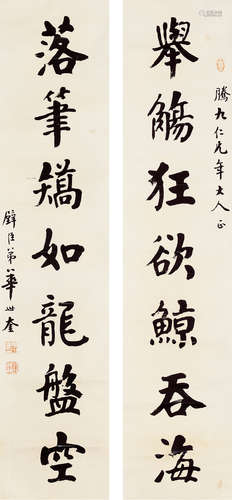 舉觴狂欲鯨吞海
騰九仁兄年大人正
落筆矯如龍盤空
璧臣弟華世奎